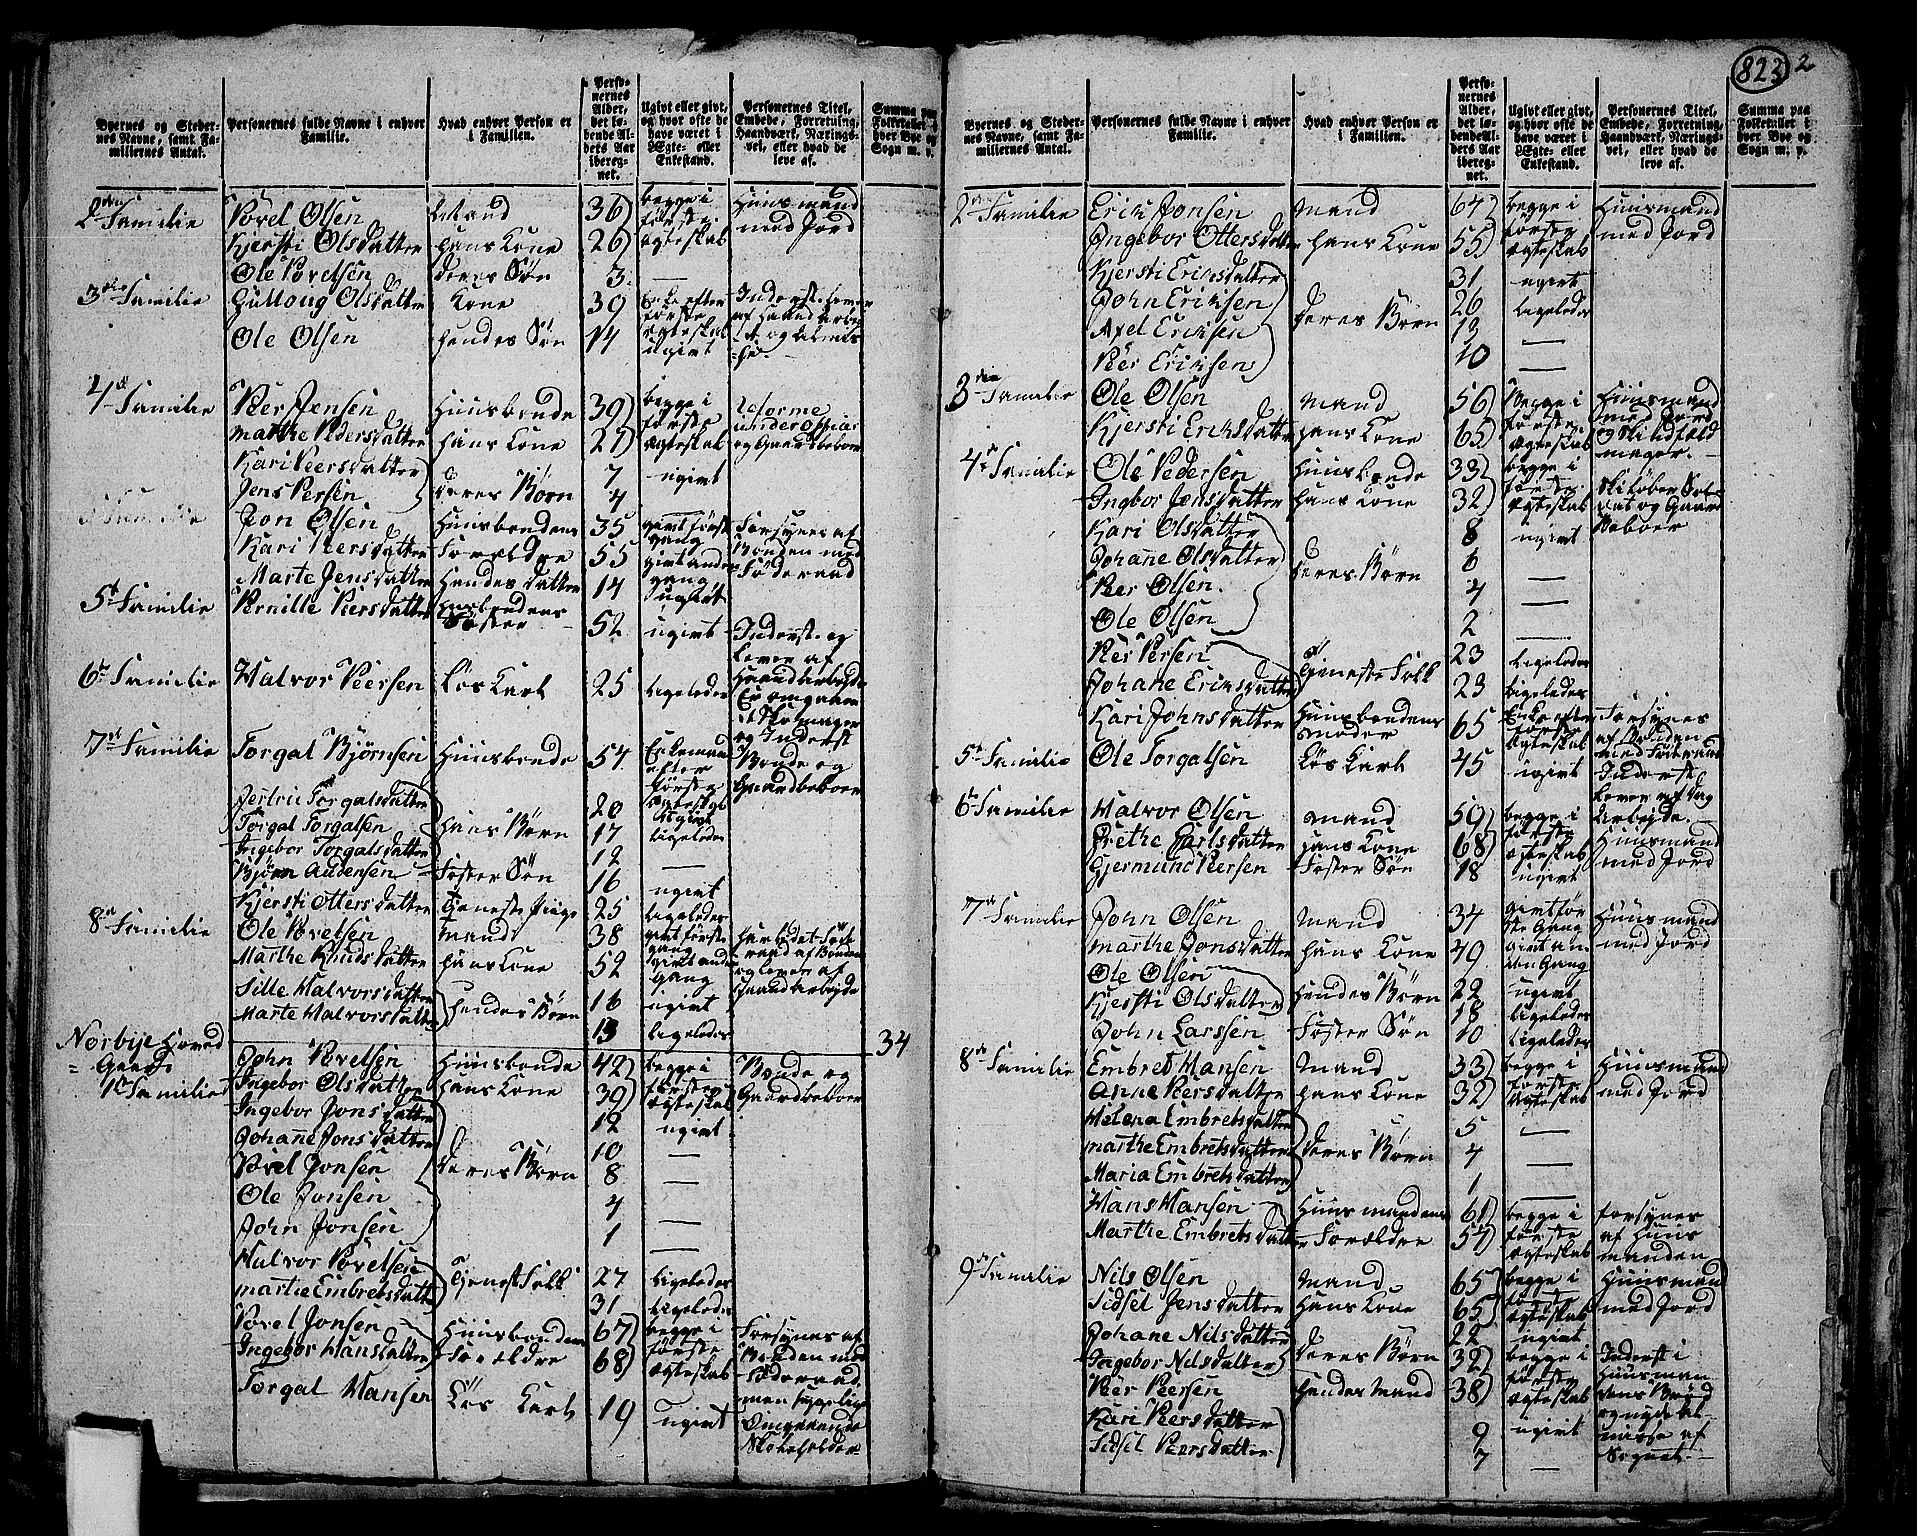 823 2
Byernes og Steder-
nes Navne, samt Fa-
miliernes Antal.
Personernes fulde Navne i enhver
Familie.
Hvad enhver Person er
i Familien.
Perso-
nernes
Alder,
det lø-
bende Al-
ders Aar
ibereg-
net.
Ugivt eller givt,
og hvor ofte de
have været i
Ægte- eller
Enkestand.
Personernes Titel,
Embede, Forretning,
Haandværk, Nærings-
vei, eller hvad de
leve af.
Summa paa
Folketallet i
hver Bye og
Sogn m. v.
2den Familie Povel Olsen Mand 36 begge i første ægteskab Huusmand med Jord
Kjersti Olsdatter hans Kone 26
Ole Povelsen deres Søn 3 —
3die Familie Gulloug Olsdatter Kone 39 Enke efter første ægteskab
Ole Olsen hendes Søn 14 ugivt
4de Familie Peer Jensen Huusbonde 39 begge i første ægteskab reforme underofficer og Gaardbeboer
Marthe Pedersdatter hans Kone 27
Kari Peersdatter deres Børn 7 ugivt
Jens Persen 4 —
Jon Olsen Huusbondens Forældre 35 givt første gang Forsynes af Bonden med Föderaad
Kari Peersdatter 55 givt anden gang
Marte Jensdatter Hendes datter 14 ugivt
5te Familie Pernille Peersdatter Huusbondens Søster 52 ugivt Inderst og lever af Haandarbejde
6te Familie Halvor Peersen Løs Karl 25 ligeledes En omgaaende Skomager og Inderst
7de Familie Torgal Bjørnsen Huusbonde 54 Enkemand efter første ægteskab Bonde og Gaardbeboer
Torgalsdatter hans Børn 20 ugivt
Torgal Torgalsen 17 ligeledes
Ingebor Torgalsdatter 12 —
Bjørn Audensen Foster Søn 16 ugivt
Kjersti Ottersdatter Tjeneste Pige 25 ligeledes
8de Familie Ole Povelsen Mand 38 givt første gang
Marthe Knudsdatter hans Kone 52 givt anden Gang
Sille Halvorsdatter hendes Børn 16 ugivt
Marte Halvorsdatter 13 ligeledes
34
Norbije Hoved
Gaard
1te Familie John Povelsen Huusbonde 42 begge i første ægteskab Bonde og Gaardbeboer
Ingebor Olsdatter hans Kone 39
Ingebor Jonsdatter deres Børn 12 ugivt
Johanne Jonsdatter 10 —
Povel Jonsen 8 —
Ole Jonsen 4 —
John Jonsen 1 —
Halvor Povelsen Tjeneste Folk 27 ligeledes
Marthe Embretsdatter 31 ligeledes
Povel Jonsen Huusbondens Forældre 67 begge i første ægteskab Forsynes af Bonden med Föderaad
Ingebor Hansdatter 68
Torgal Hansen Løs Karl 19 ugivt
Byernes og Steder-
nes Navne, samt Fa-
miliernes Antal.
Personernes fulde Navne i enhver
Familie.
Hvad enhver Person er
i Familien.
Perso-
nernes
Alder,
det lø-
bende Al-
ders Aar
ibereg-
net.
Ugivt eller givt,
og hvor ofte de
have været i
Ægte- eller
Enkestand.
Personernes Titel,
Embede, Forretning,
Haandværk, Nærings-
vei, eller hvad de
leve af.
Summa paa
Folketallet i
hver Bye og
Sogn m. v.
2den Familie Erik Jonsen Mand 64 begge i første ægteskab Huusmand med Jord
Ingebor Ottersdatter hans Kone 55
Kjersti Eriksdatter deres Børn 31 ugivt
John Eriksen 26 ligeledes
Axel Eriksen —
Peer Eriksen 10 —
3die Familie Ole Olsen Mand 56 Begge i første ægteskab Huusmand med Jord
Kjersti Eriksdatter hans Kone 65
4de Familie Ole Pedersen Huusbonde 33 begge i første ægteskab
Ingebor Jensdatter hans Kone 32
Kari Olsdatter deres Børn 8 ugivt
Johanne Olsdatter 6 —
Peer Olsen 4 —
Ole Olsen 2 —
Peer Persen Tjeneste Folk 23 ligeledes
Johane Eriksdatter 23 ligeledes
Kari Johnsdatter Huusbondens moder 65 Enke efter første ægteskab Forsynes af Bonden med Föderaad
5te Familie Ole Torgalsen Løs Karl 45 ugivt Inderst lever af Dag Arbejde
6te Familie Halvor Olsen Mand 59 begge i første ægteskab Huusmand med Jord
Grethe Carlsdatter hans Kone 68
Gjermund Peersen Foster Søn 18 ugivt
7de Familie John Olsen Mand 34 givt første Gang Huusmand med Jord
Marthe Jonsdatter hans Kone 49 givt anden Gang
Ole Olsen Hendes Børn 22 ugivt
Kjersti Olsdatter 18 ligeledes
John Larssen Foster Søn 10 ligeledes
8de Familie Embret Hansen Mand 33 begge i første ægteskab Huusmand med Jord
Anne Peersdatter hans Kone 32
Helena Embretsdatter deres Børn 5 —
Marthe Embretsdatter 4 —
Maria Embretsdatter 1 —
Hans Hansen Huusmandens Forældre 61 begge i første ægteskab forsynes af Huusmanden
Marthe Embretsdatter 57
9de Familie Nils Olsen Mand 65 begge i første ægteskab Huusmand med Jord
Sidsel Jensdatter Hans Kone 65
Johane Nilsdatter deres Børn 22 ugivt
Ingebor Nilsdatter 32 begge i første ægteskab
Peer Peersen hendes Mand 38
Kari Peersdatter 9 ugivt
Sidsel Peersdatter 7 —